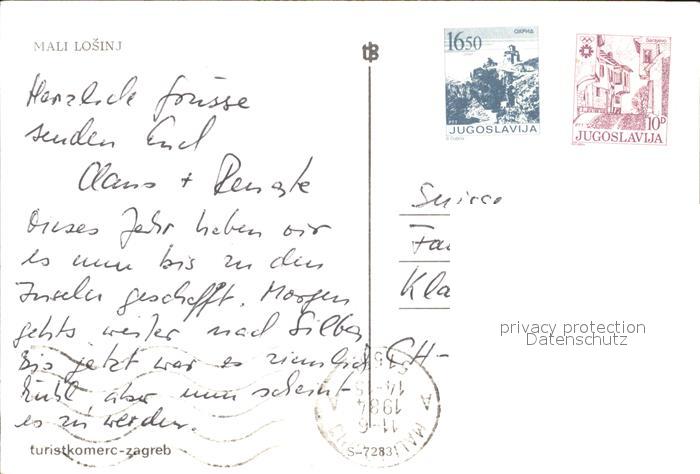 MALI LOŠINJ
tB
16 50
ОХРИД
PTT
JUGOSLAVIJA
Sarajevo
PTT
10 D
JUGOSLAVIJA
Herzliche Grüsse
senden Euch
Claus + Renate
Dieses Jahr haben wir
es nun bis zu den
Inseln geschafft. Morgen
gehts weiter nach
Bis jetzt war es ziemlich
kühl aber nun scheint
es zu werden.
Suisse
Fa
Kla
CH-
privacy protection
Datenschutz
11-6
1984
14-15
MALI
turistkomerc-zagreb
S-7283